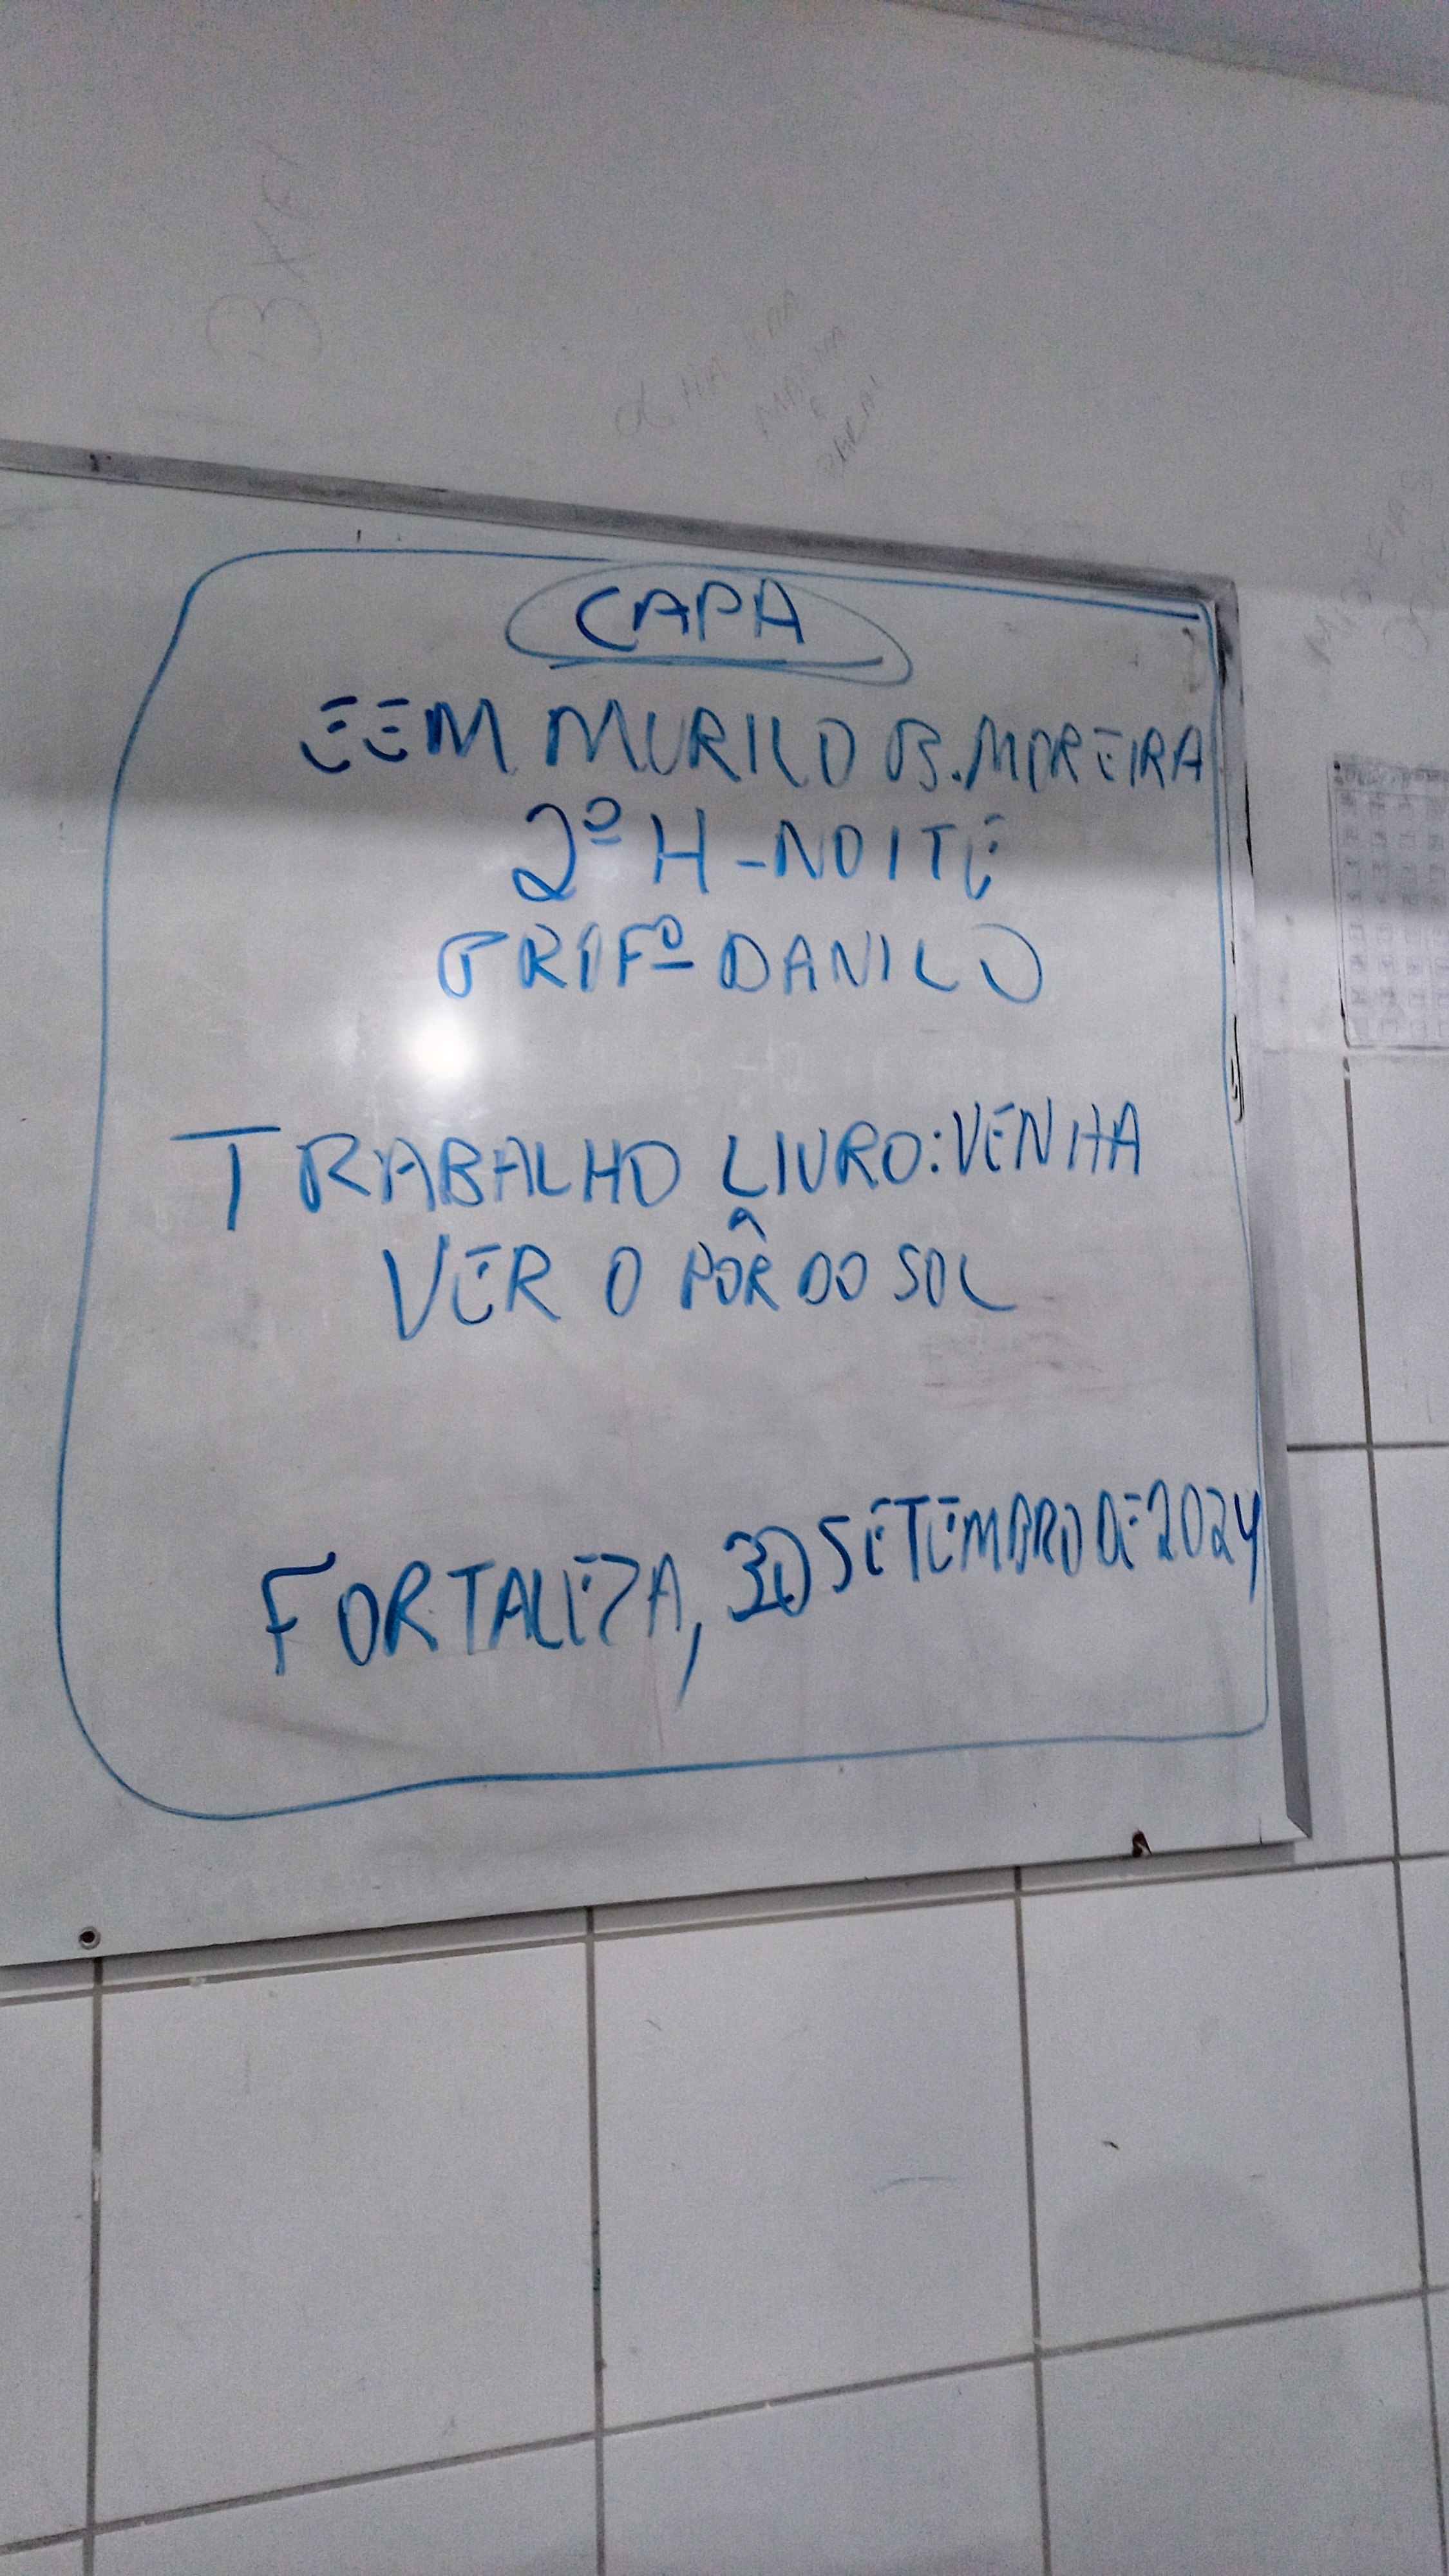 CAPA
EEM MURILO B. MOREIRA
2º H - NOITE
PROFº DANILO
TRABALHO LIVRO: VENHA
VER O PÔR DO SOL
FORTALEZA, 30 SETEMBRO DE 2024